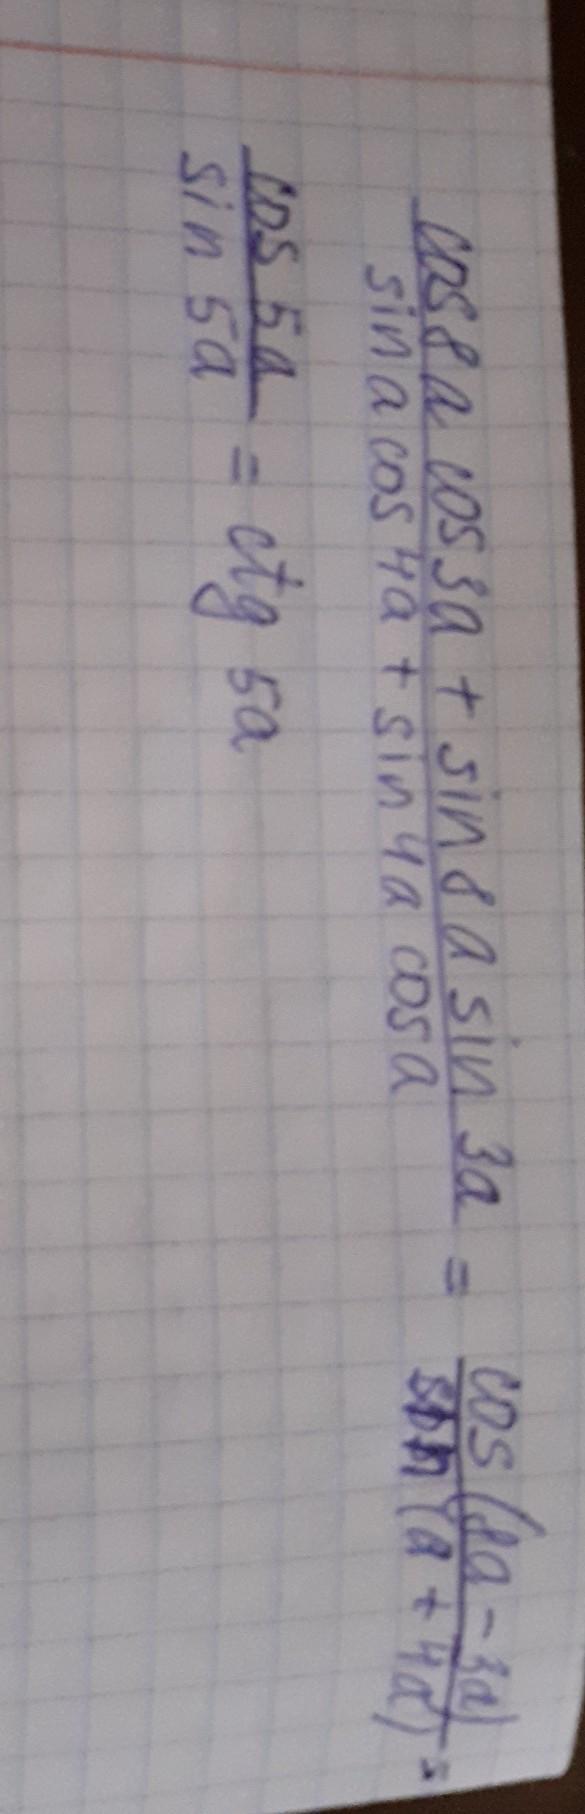 cos 8a cos 3a + sin 8a sin 3a / sin a cos 4a + sin 4a cos a = cos (8a - 3a) / sin (a + 4a) =
cos 5a / sin 5a = ctg 5a